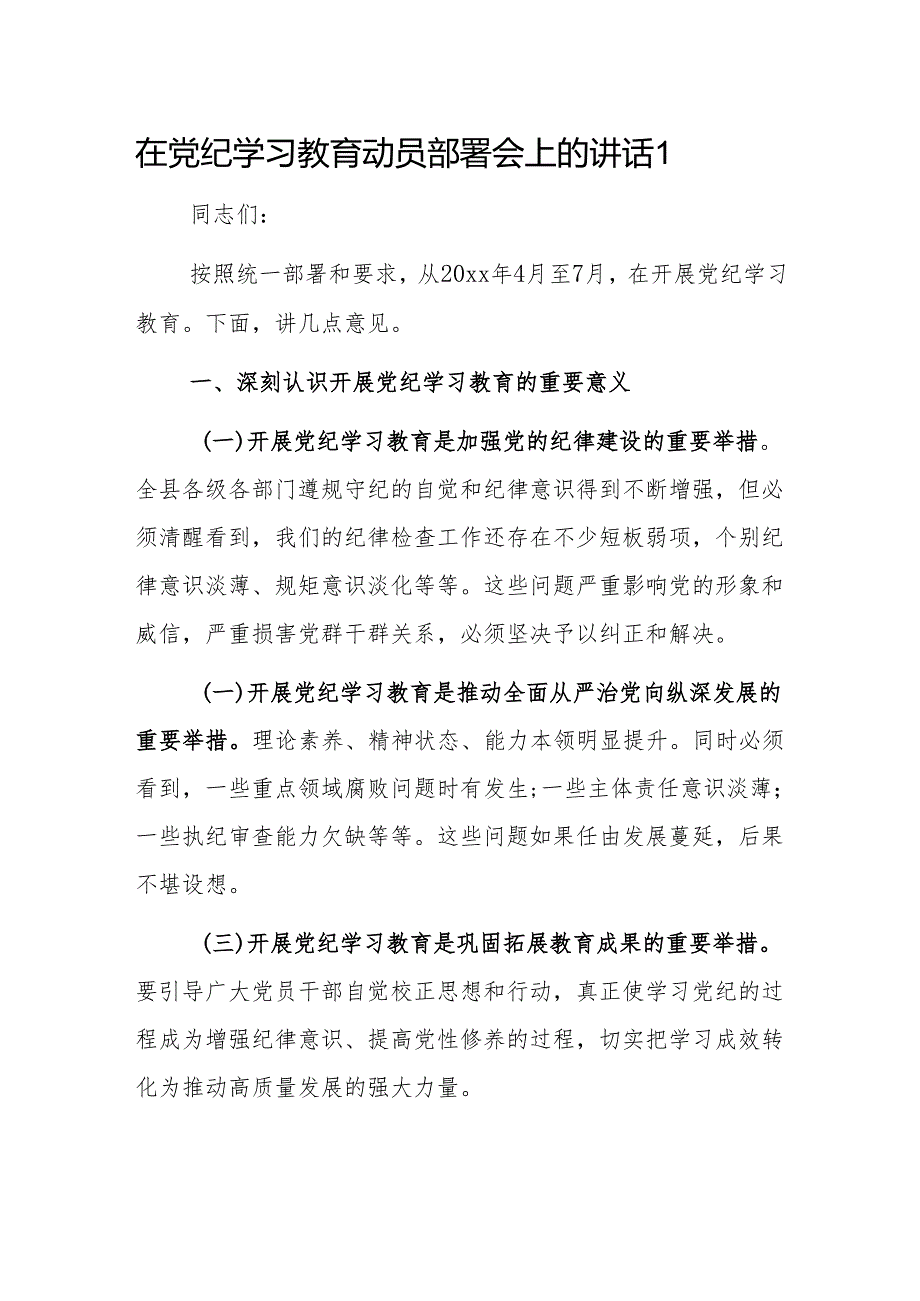 在党纪学习教育动员部署会上的讲话1
同志们：
按照统一部署和要求，从20xx年4月至7月，在开展党纪学习
教育。下面，讲几点意见。
一、深刻认识开展党纪学习教育的重要意义
(一)开展党纪学习教育是加强党的纪律建设的重要举措。
全县各级各部门遵规守纪的自觉和纪律意识得到不断增强，但必
须清醒看到，我们的纪律检查工作还存在不少短板弱项，个别纪
律意识淡薄、规矩意识淡化等等。这些问题严重影响党的形象和
威信，严重损害党群干群关系，必须坚决予以纠正和解决。
(一)开展党纪学习教育是推动全面从严治党向纵深发展的
重要举措。理论素养、精神状态、能力本领明显提升。同时必须
看到，一些重点领域腐败问题时有发生;一些主体责任意识淡薄;
一些执纪审查能力欠缺等等。这些问题如果任由发展蔓延，后果
不堪设想。
(三)开展党纪学习教育是巩固拓展教育成果的重要举措。
要引导广大党员干部自觉校正思想和行动，真正使学习党纪的过
程成为增强纪律意识、提高党性修养的过程，切实把学习成效转
化为推动高质量发展的强大力量。